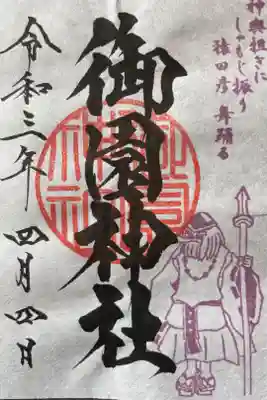 神輿担ぎに
しゃもじ振り
猿田彦舞踊る
御園神社
令和三年 四月四日